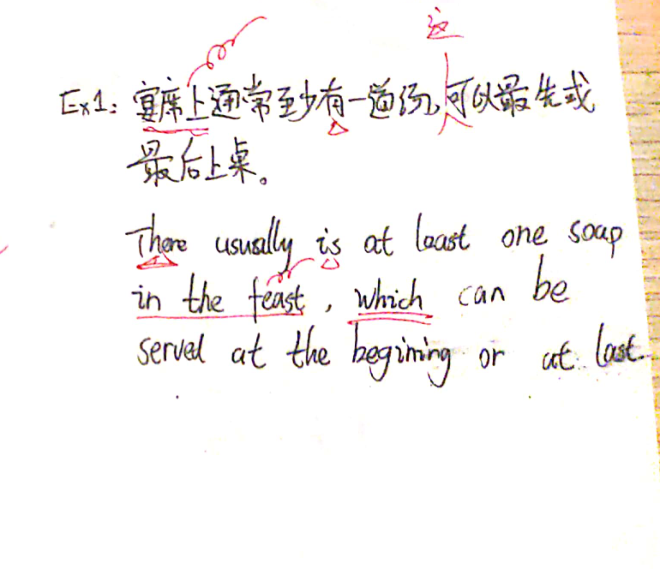 这
Ex1: 宴席上通常至少有一道汤,可以最先或
最后上桌。
There usually is at least one soap
in the feast, which can be
served at the begining or at last.